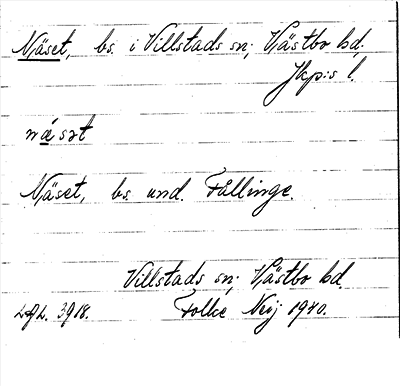 Näset, bs. i Villstads sn; Västbo hd,
Jkp:s l.
näsət
Näset, bs. und. Fållinge.
Villstads sn; Västbo hd.
LAL. 3918. Folke Neij 1940.